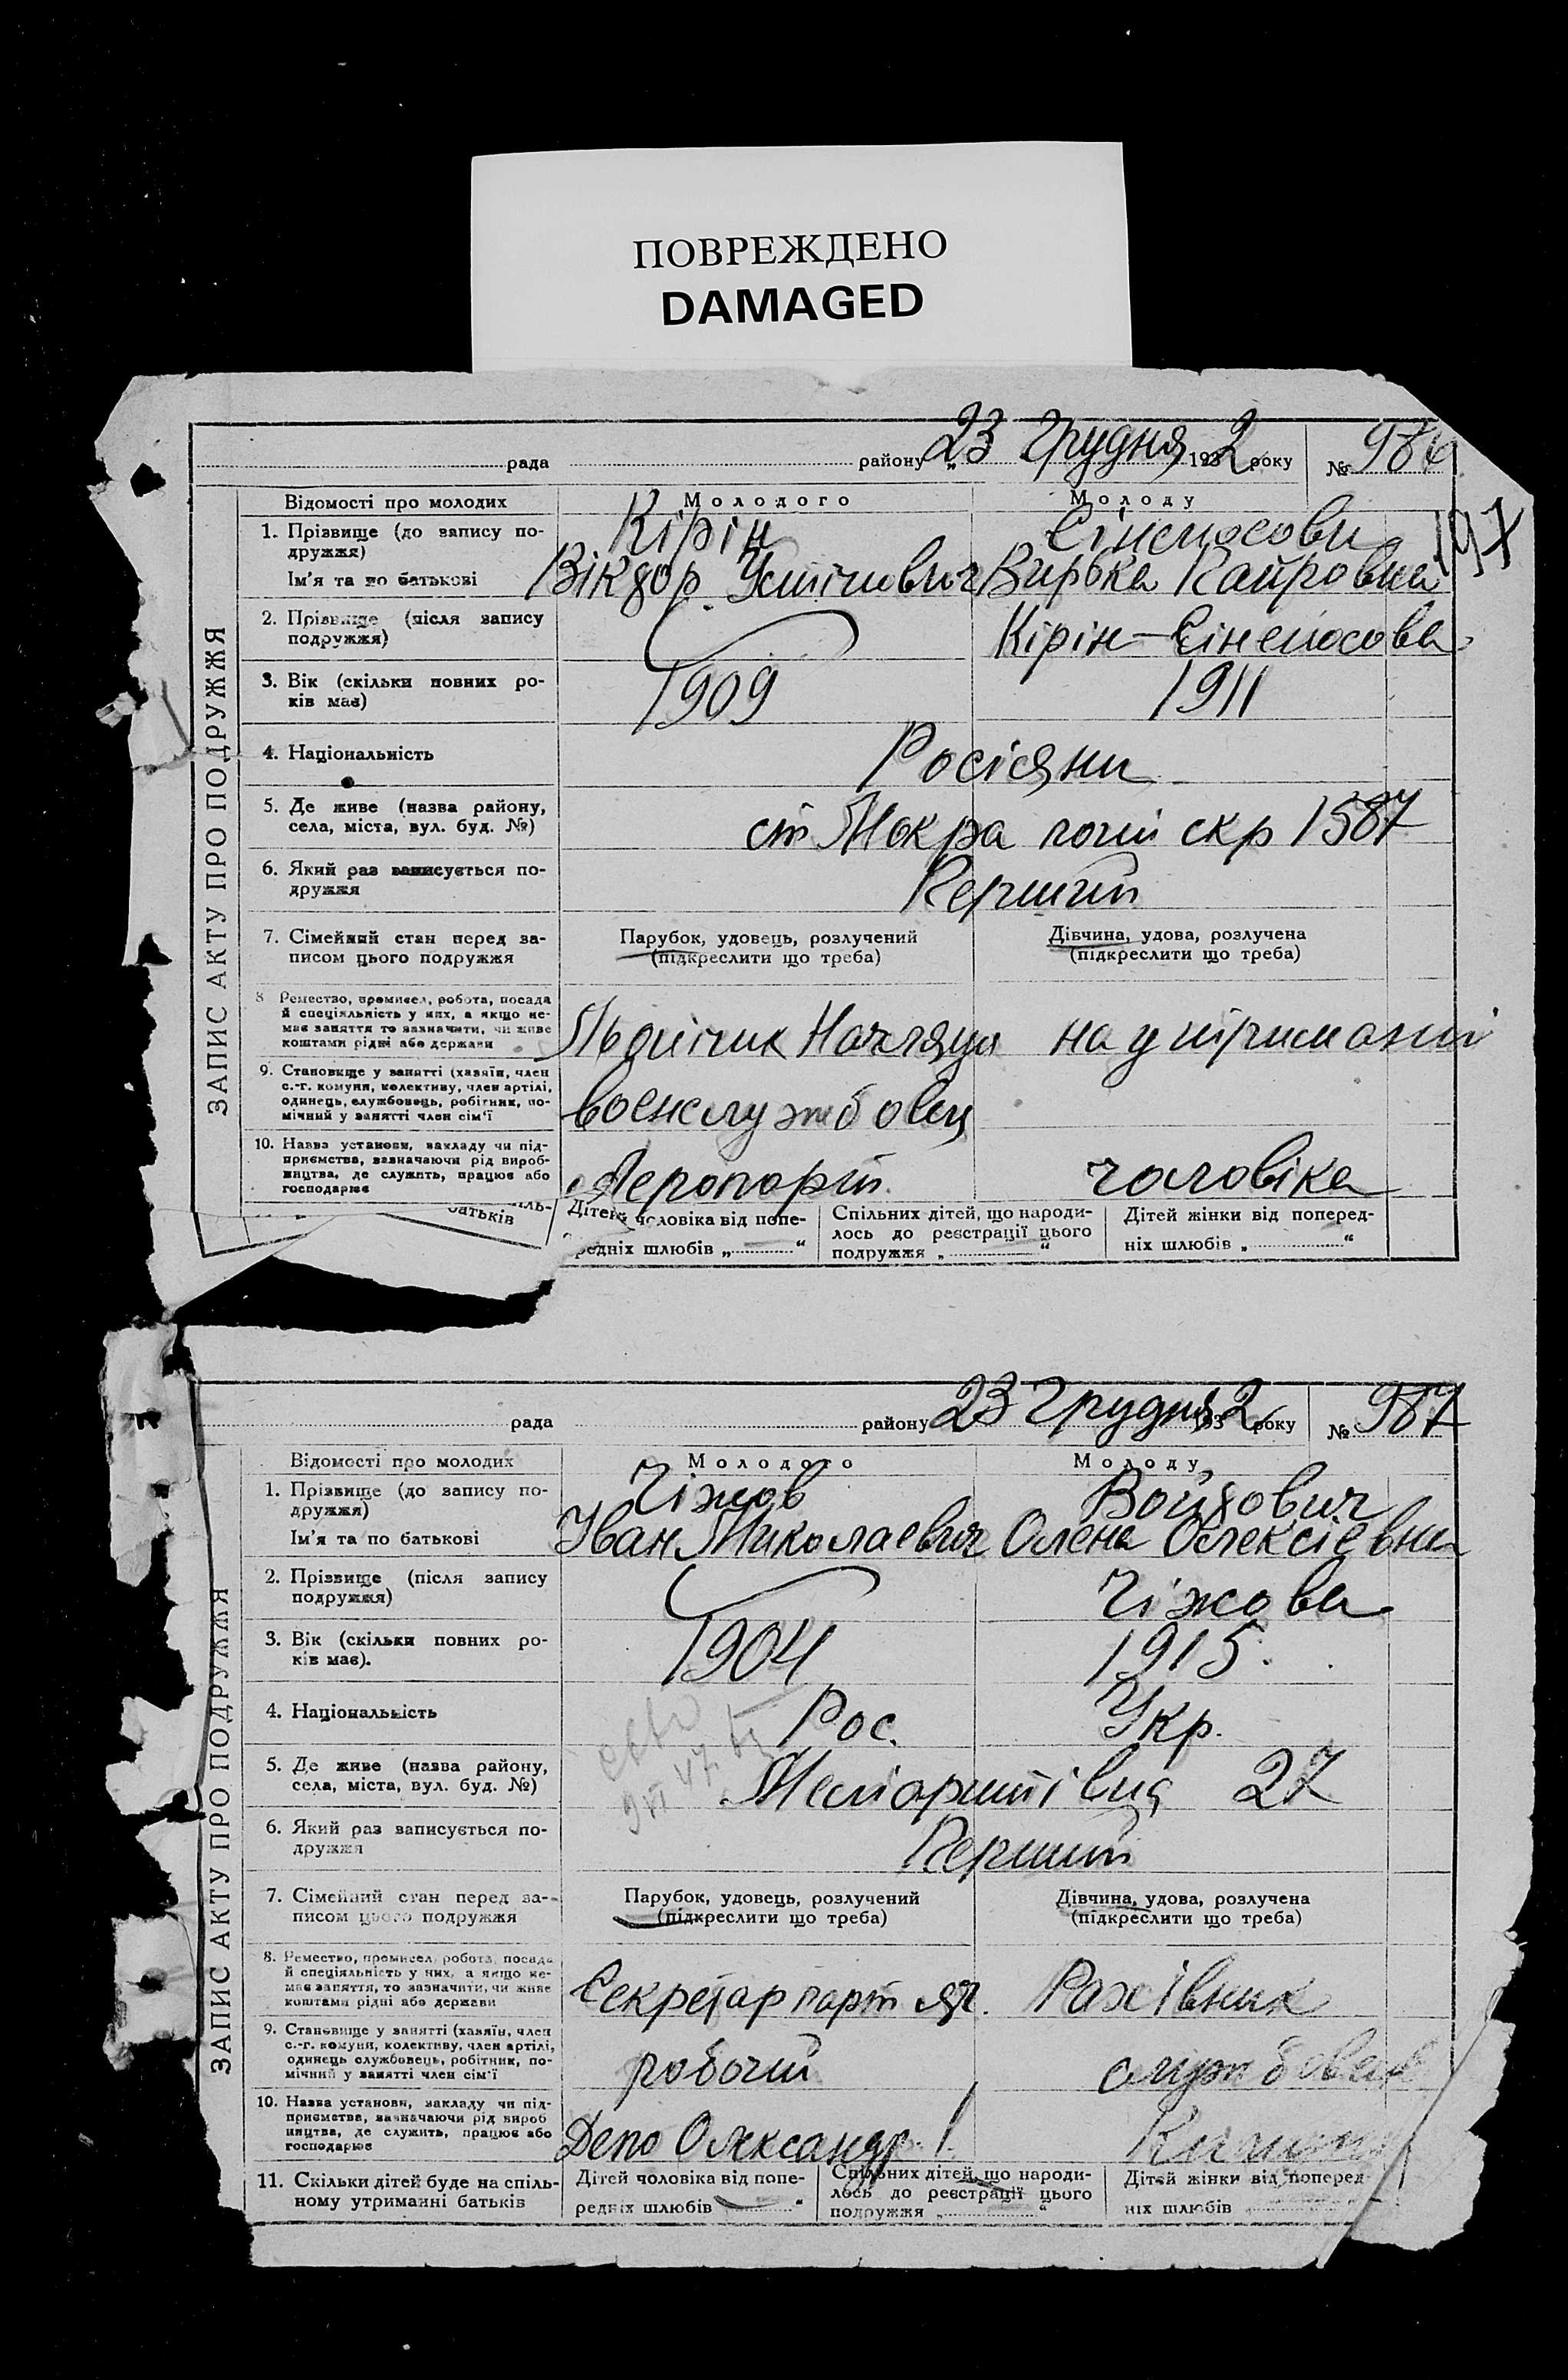 ПОВРЕЖДЕНО
DAMAGED
рада району „23 Грудня 1932 року № 986
197
ЗАПИС АКТУ ПРО ПОДРУЖЖЯ
Відомості про молодих Молодого Молоду
1. Прізвище (до запису по-
дружжя) Кірін
Ім'я та по батькові Віктор
2. Прізвище (після запису
подружжя) Кірін-
3. Вік (скільки повних ро-
ків має) 1909 1911
4. Національність Росіяни
5. Де живе (назва району,
села, міста, вул. буд. №) ст Мокра почт скр 1587
6. Який раз записується по-
дружжя Перший
7. Сімейний стан перед за-
писом цього подружжя
Парубок, удовець, розлучений
(підкреслити що треба)
Дівчина, удова, розлучена
(підкреслити що треба)
8 Ремество, промисел, робота, посада
й спеціяльність у них, а якщо не-
має заняття то зазначити, чи живе
коштами рідні або держави на утриманні
9. Становище у занятті (хазяїн, член
с.-г. комуни, колективу, член артілі,
одинець, службовець, робітник, по-
мічний у занятті член сім'ї военслужбовец
10. Назва установи, закладу чи під-
приємства, зазначаючи рід вироб-
ництва, де служить, працює або
господарює Аеропорт чоловіка
іль-
батьків
Дітей чоловіка від попе-
редніх шлюбів „ “
Спільних дітей, що народи-
лось до реєстрації цього
подружжя „ “
Дітей жінки від поперед-
ніх шлюбів „ “
рада району 23 Грудня 1932 року № 987
ЗАПИС АКТУ ПРО ПОДРУЖЖЯ
Відомості про молодих Молодого Молоду
1. Прізвище (до запису по-
дружжя) Чіжов Войдович
Ім'я та по батькові Іван Миколаевич Олена Олексіевна
2. Прізвище (після запису
подружжя) Чіжова
3. Вік (скільки повних ро-
ків має). 1904 1915.
4. Національність Рос. Укр.
5. Де живе (назва району,
села, міста, вул. буд. №) 27
6. Який раз записується по-
дружжя Перший
7. Сімейний стан перед за-
писом цього подружжя
Парубок, удовець, розлучений
(підкреслити що треба)
Дівчина, удова, розлучена
(підкреслити що треба)
8. Ремество, промисел, робота, посада
й спеціяльність у них, а якщо не-
має заняття, то зазначити, чи живе
коштами рідні або держави Секретар парт яч. Рахівник
9. Становище у занятті (хазяїн, член
с.-г. комуни, колективу, член артілі,
одинець службовець, робітник, по-
мічний у занятті член сім'ї робочий службовец
10. Назва установи, закладу чи під-
приємства, зазначаючи рід вироб
ництва, де служить, працює або
господарює Депо Олександр. 1
11. Скільки дітей буде на спіль-
ному утриманні батьків
Дітей чоловіка від попе-
редніх шлюбів “
Спільних дітей, що народи-
лось до реєстрації цього
подружжя „ “
Дітей жінки від поперед-
ніх шлюбів